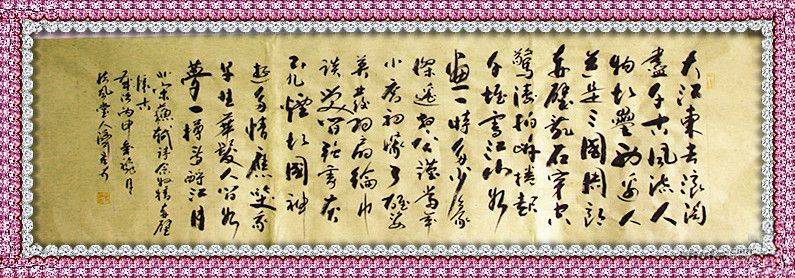 大江東去浪淘
盡千古風流人
物故壘西邊人
道是三國周郎
赤壁亂石穿空
驚濤拍岸捲起
千堆雪江山如
畫一時多少豪
傑遥想公瑾當年
小喬初嫁了雄姿
英發羽扇綸巾
談笑間強虜灰
飛煙故國神
遊多情應笑我
早生華髮人間如
夢一樽還酹江月
北宋蘇軾詩念奴嬌赤壁
懷古
歲次丙申